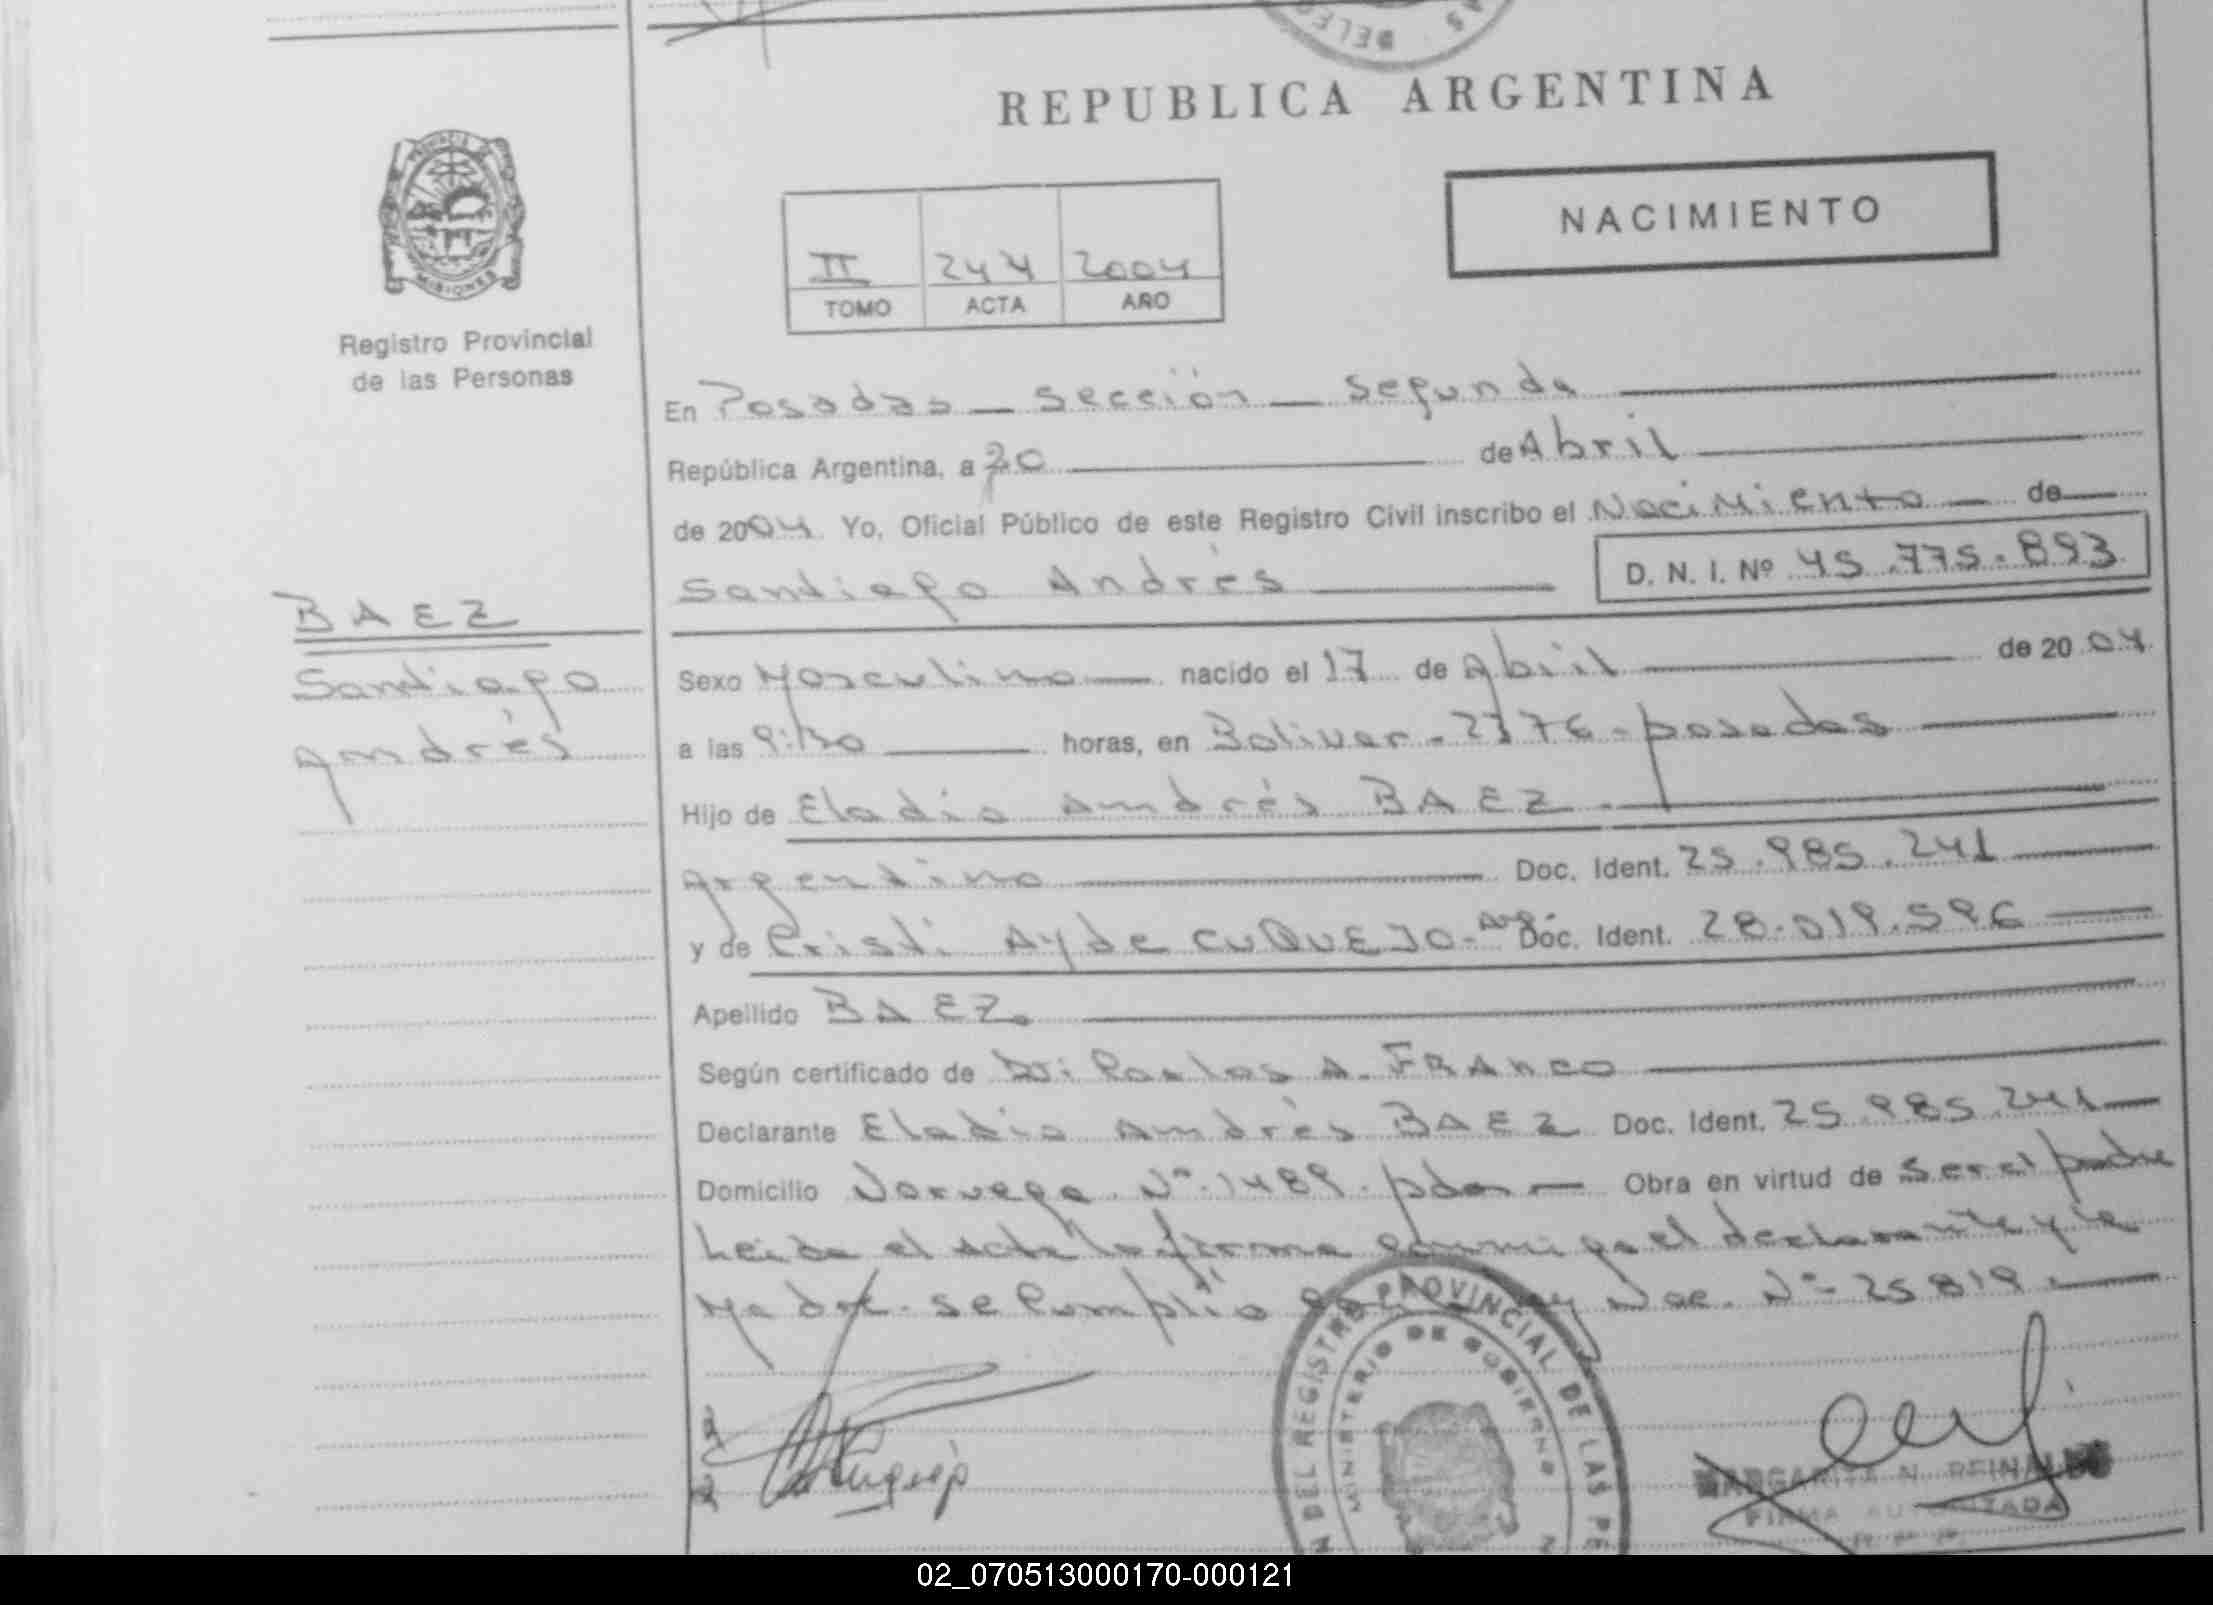 DELEG
AS
REPUBLICA ARGENTINA
PROVINCIA DE
MISIONES
Registro Provincial
de las Personas
NACIMIENTO
II 244 2004
TOMO ACTA AÑO
En Posadas - sección - Segunda
República Argentina, a 20 de Abril
de 2004 Yo, Oficial Público de este Registro Civil inscribo el Nacimiento de
Santiago Andrés
D. N. I. Nº 45.775.893
BAEZ
Santiago
Andrés
Sexo Masculino nacido el 17 de Abril de 2004
a las horas, en Bolivar - 2376 - posadas
Hijo de Eladio Andrés BAEZ
Argentino Doc. Ident. 25.985.241
y de Cristi Ayde CUQUEJO - Arg. Doc. Ident. 28.019.596
Apellido BAEZ
Según certificado de Dr: Carlos A. FRANCO
Declarante Eladio Andrés BAEZ Doc. Ident. 25.985.241
Domicilio Noruega Nº 1489 - pdas Obra en virtud de Ser el padre
Leida el acta la firma conmigo el declarante y la
Madre. Se Cumplio Ley Nac. Nº 25819
DEL REGISTRO PROVINCIAL DE LAS PE
MINISTERIO DE GOBIERNO
MARGARITA N. REINALDO
FIRMA AUTORIZADA
02_070513000170-000121